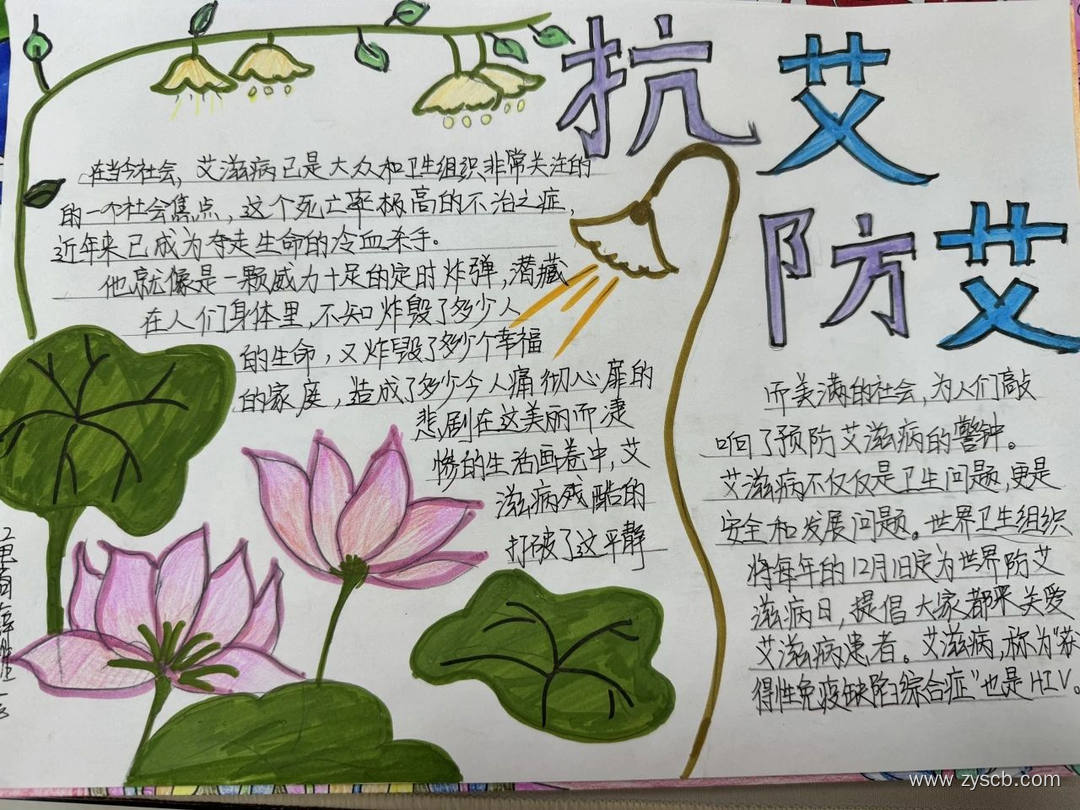 抗艾
防艾
在当今社会，艾滋病已是大众和卫生组织非常关注的
的一个社会焦点，这个死亡率极高的不治之症，
近年来已成为夺走生命的冷血杀手。
他就像是一颗威力十足的定时炸弹，潜藏
在人们身体里，不知炸毁了多少人
的生命，又炸毁了多少个幸福
的家庭，造成了多少今人痛彻心扉的
悲剧在这美丽而凄
惨的生活画卷中，艾
滋病残酷的
打破了这平静
而美满的社会，为人们敲
响了预防艾滋病的警钟。
艾滋病不仅仅是卫生问题，更是
安全和发展问题。世界卫生组织
将每年的12月1日定为世界防艾
滋病日，提倡大家都来关爱
艾滋病患者。艾滋病，称为“获
得性免疫缺陷综合症”也是HIV。
www.zyscb.com